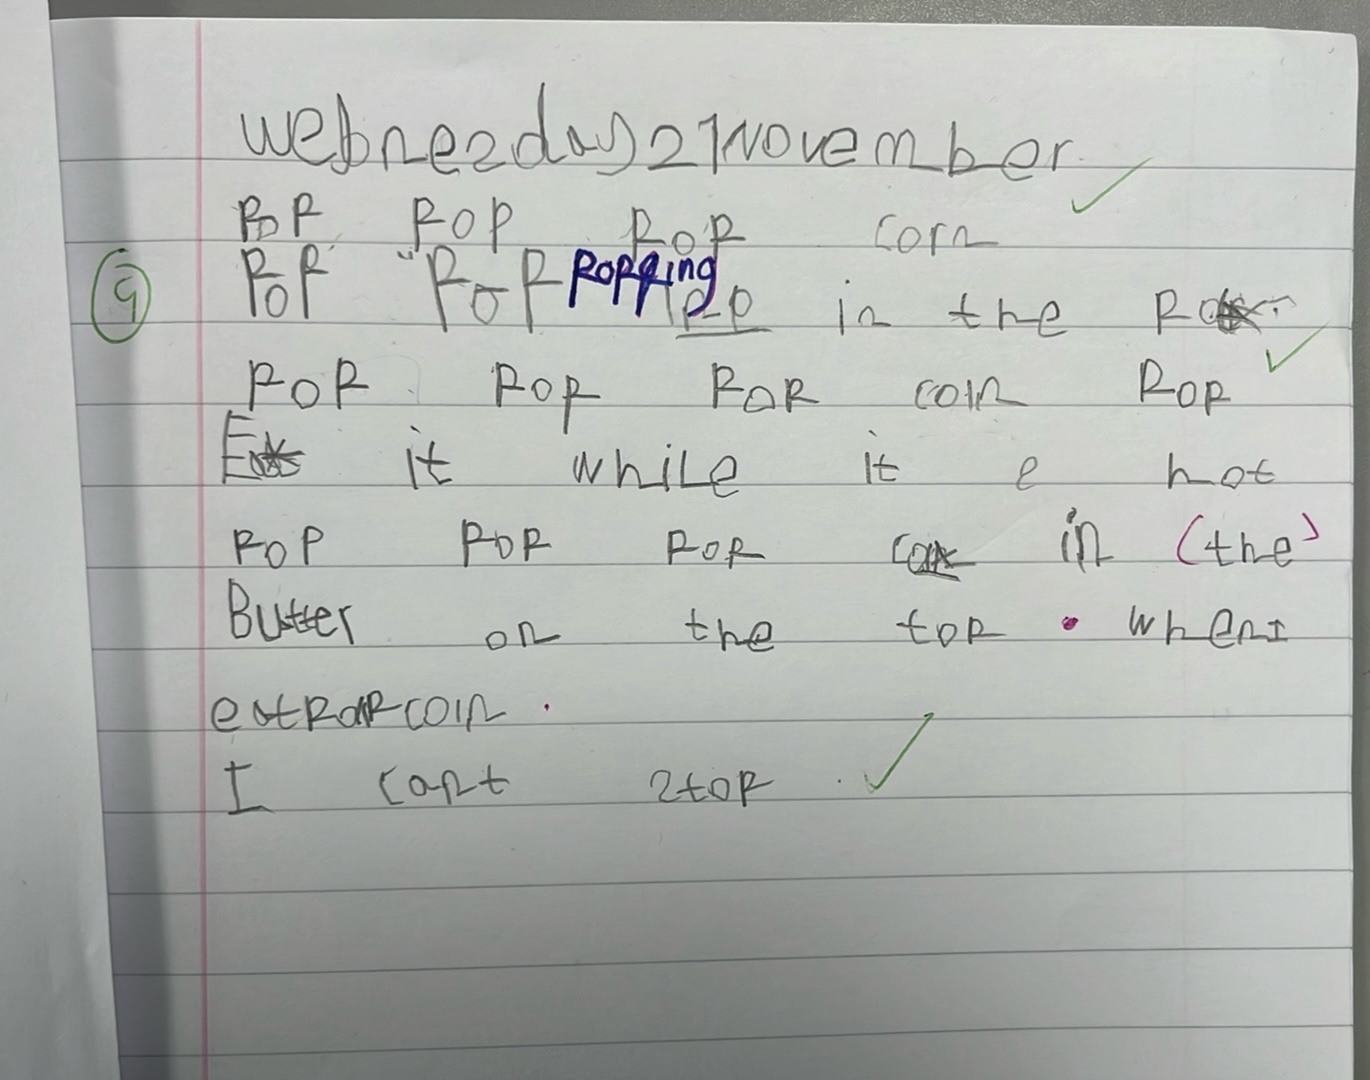 Webnezday 21 November
POP POP POP corn
9 POP "POP popping in the
POP POP POP coin POP
it while it e hot
POP POP POP in (the)
Butter on the top . when I
eatpopcoin .
I cant 2top .